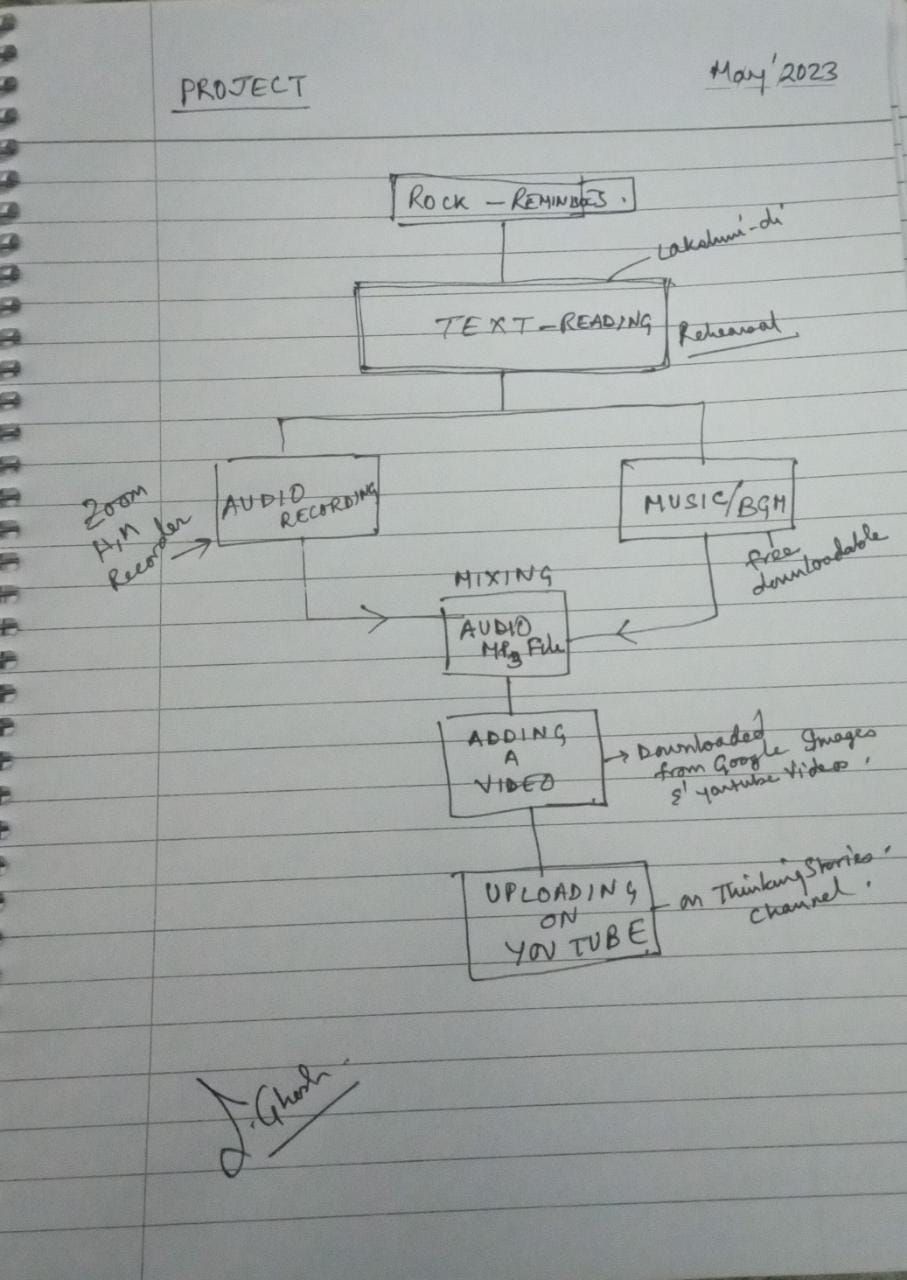 PROJECT
May' 2023
ROCK - REMINDS.
Lakshmi-di
TEXT-READING
Rehearsal
AUDIO
RECORDING
Zoom
Recorder
MUSIC/BGM
free
downloadable
MIXING
AUDIO
MP3 File
ADDING
A
VIDEO
Downloaded
from Google Images
& Youtube Videos.
UPLOADING
ON
YOUTUBE
on ThinkingStories
Channel.
Ghosh